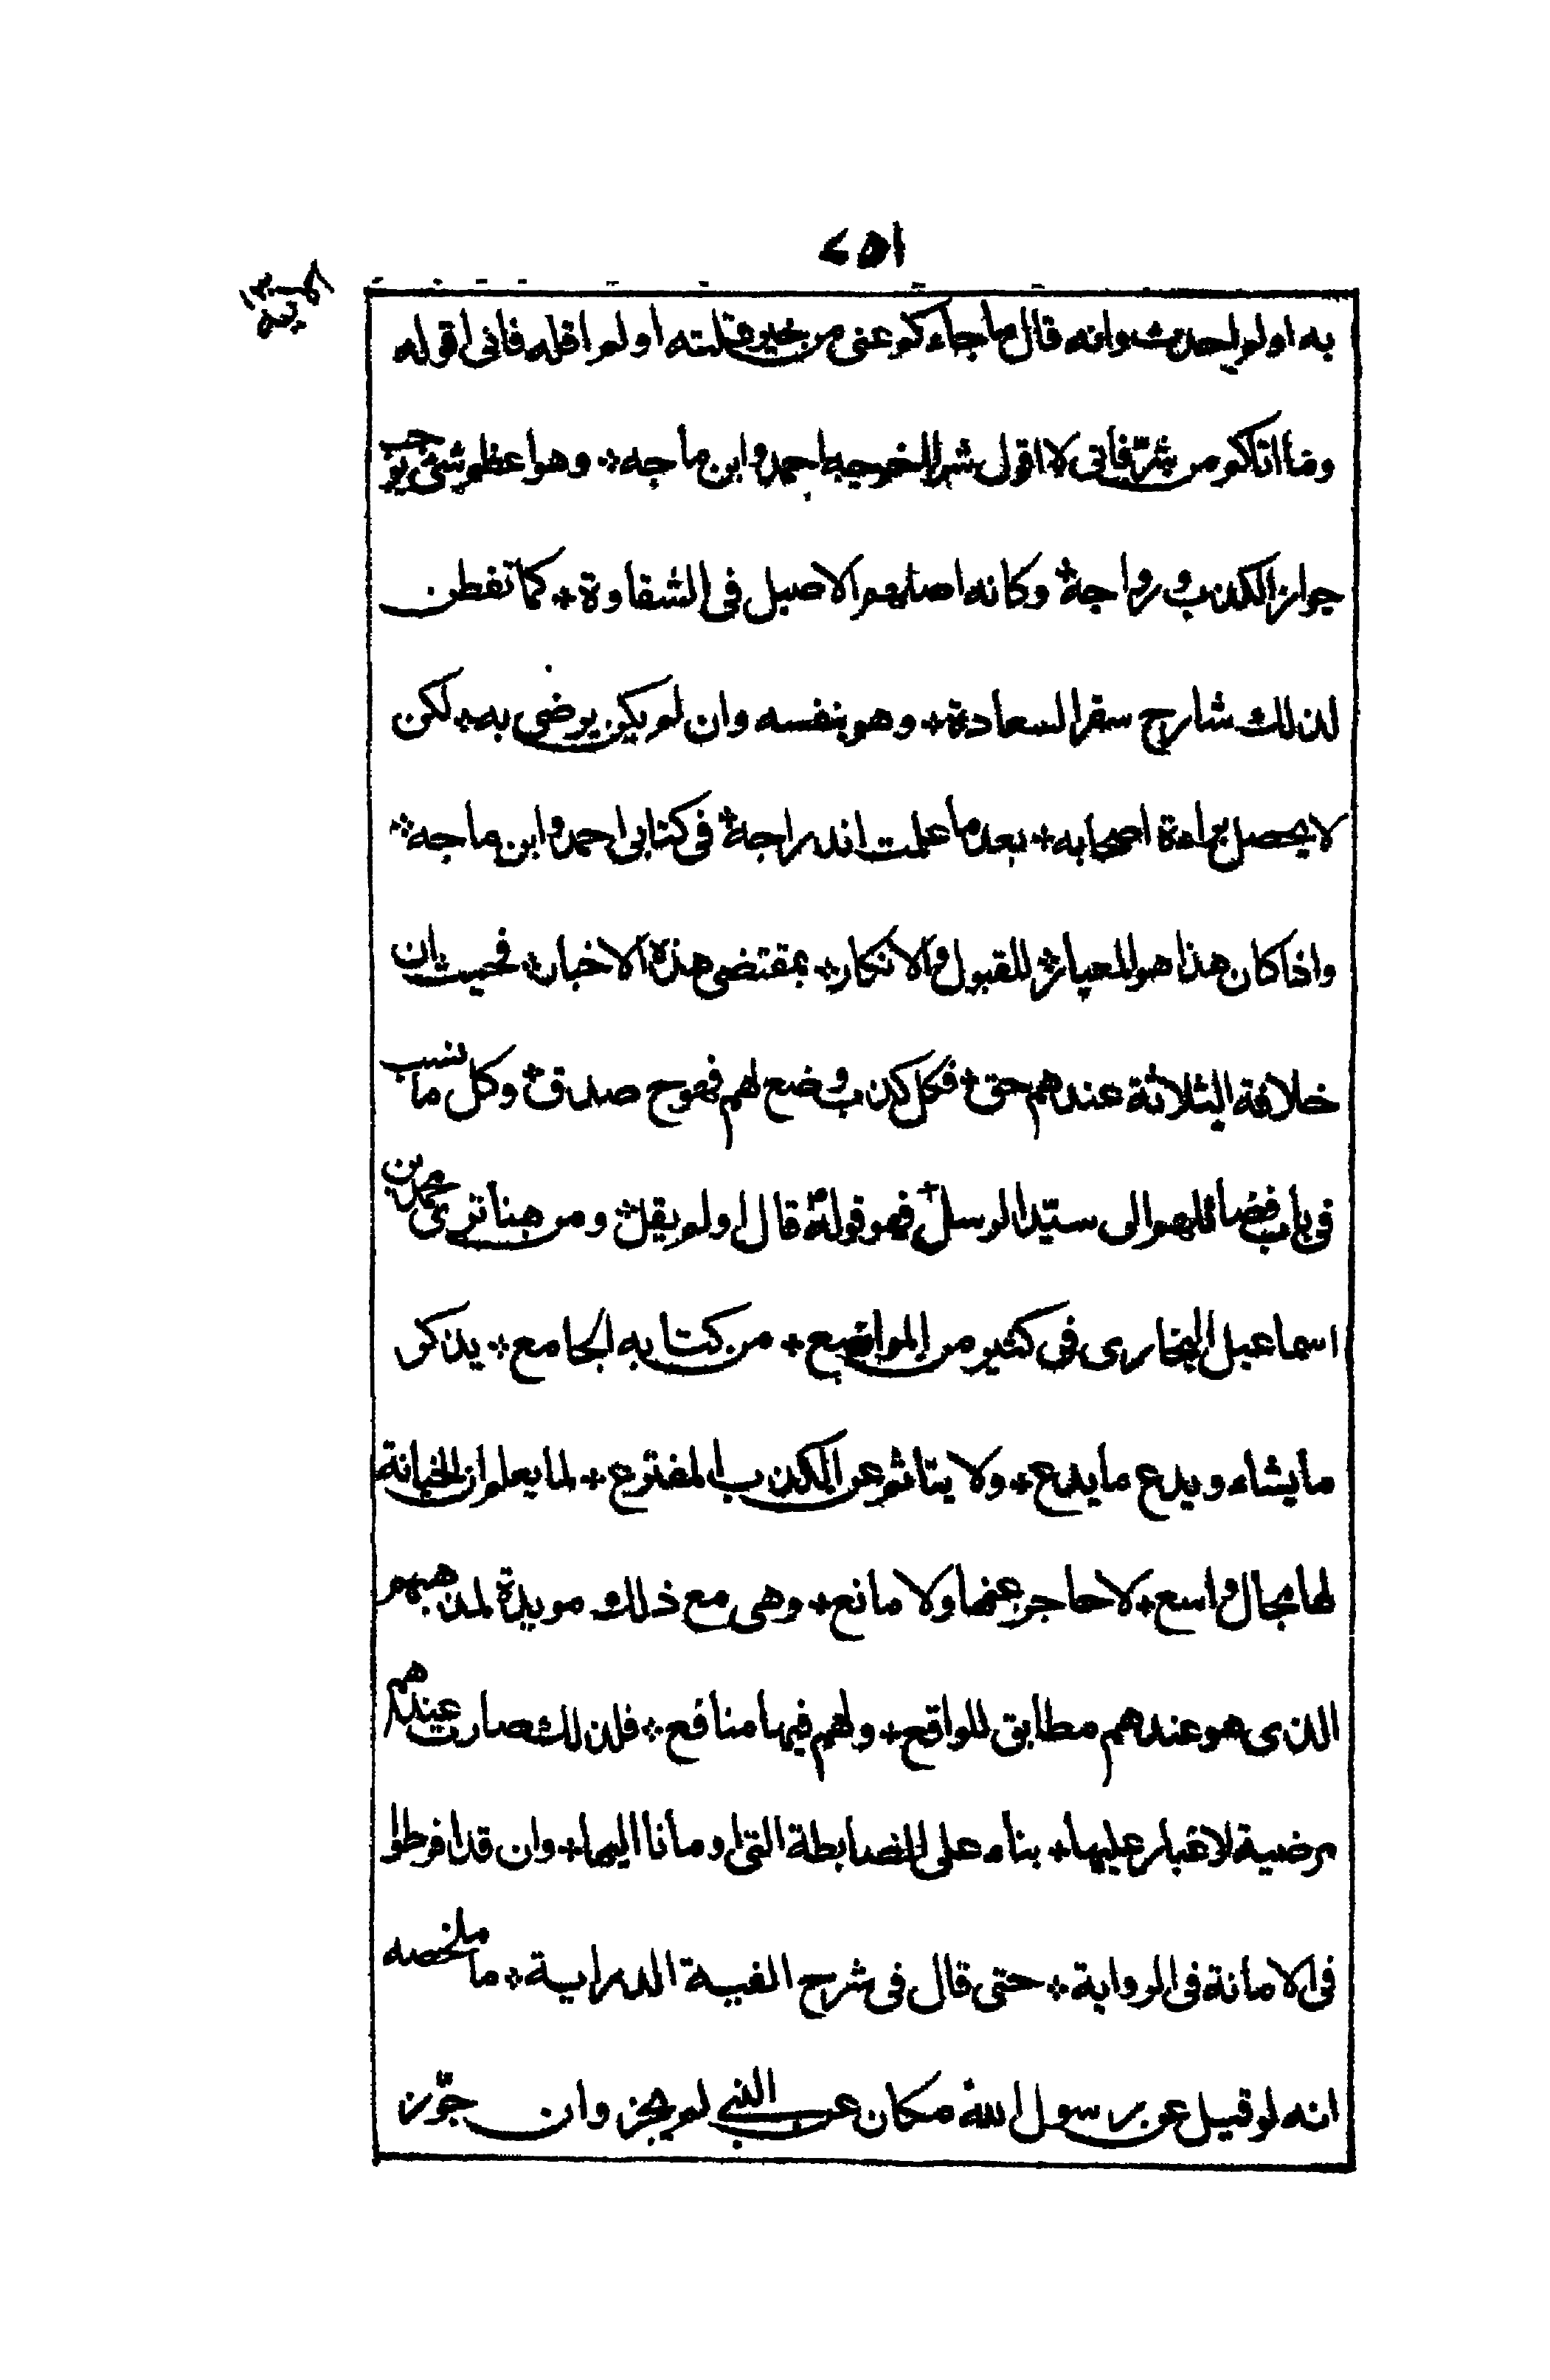 ٢٥١
به اولم احدث وانه قال ما جاءكم عنى من خير قلته او لم اقله فانى اقوله
وما اتاكم من شرّ فانى لا اقول شرا اخرجه احمد وابن ماجه + وهو اعظم شئ يوجب
جواز الكذب ورواجه + وكانه اصلهم الاصيل فى الشقاوة + كما تفطن
لذلك شارح سفر السعادة + وهو بنفسه وان لم يكن يرضى به + لكن
لا يحصل براءة اصحابه + بعد ما علمت اندراجه + فى كتابى احمد وابن ماجه +
واذا كان هذا هو المعيار + للقبول والانكار + بمقتضى هذه الاخبار + فحيث ان
خلافة الثلاثة عندهم حق + فكل كذب وضع لهم فهو ح صدق + وكل ما نسب
فى باب فضائلهم الى سيّد الرسل + فهو قوله قال او لم يقل + ومن هنا ترى محمد بن
اسماعيل البخارى فى كثير من المواضع + من كتابه الجامع + يذكر
ما يشاء ويدع ما يدع + ولا يتاثم عن الكذب المفترع + لما يعلم ان الخيانة
لها مجال واسع + لا حاجر عنها ولا مانع + وهى مع ذلك مويدة لمذهبهم
الذى هو عندهم مطابق للواقع + ولهم فيها منافع + فلذلك صارت عندهم
مرضية لا غبار عليها + بناء على الضابطة التى اومأنا اليها + وان قد افرطوا
فى الامانة فى الرواية + حتى قال فى شرح الفية الدراية + ما ملخصه
انه لو قيل عن رسول الله مكان عن النبي لم يجز وان جوّز